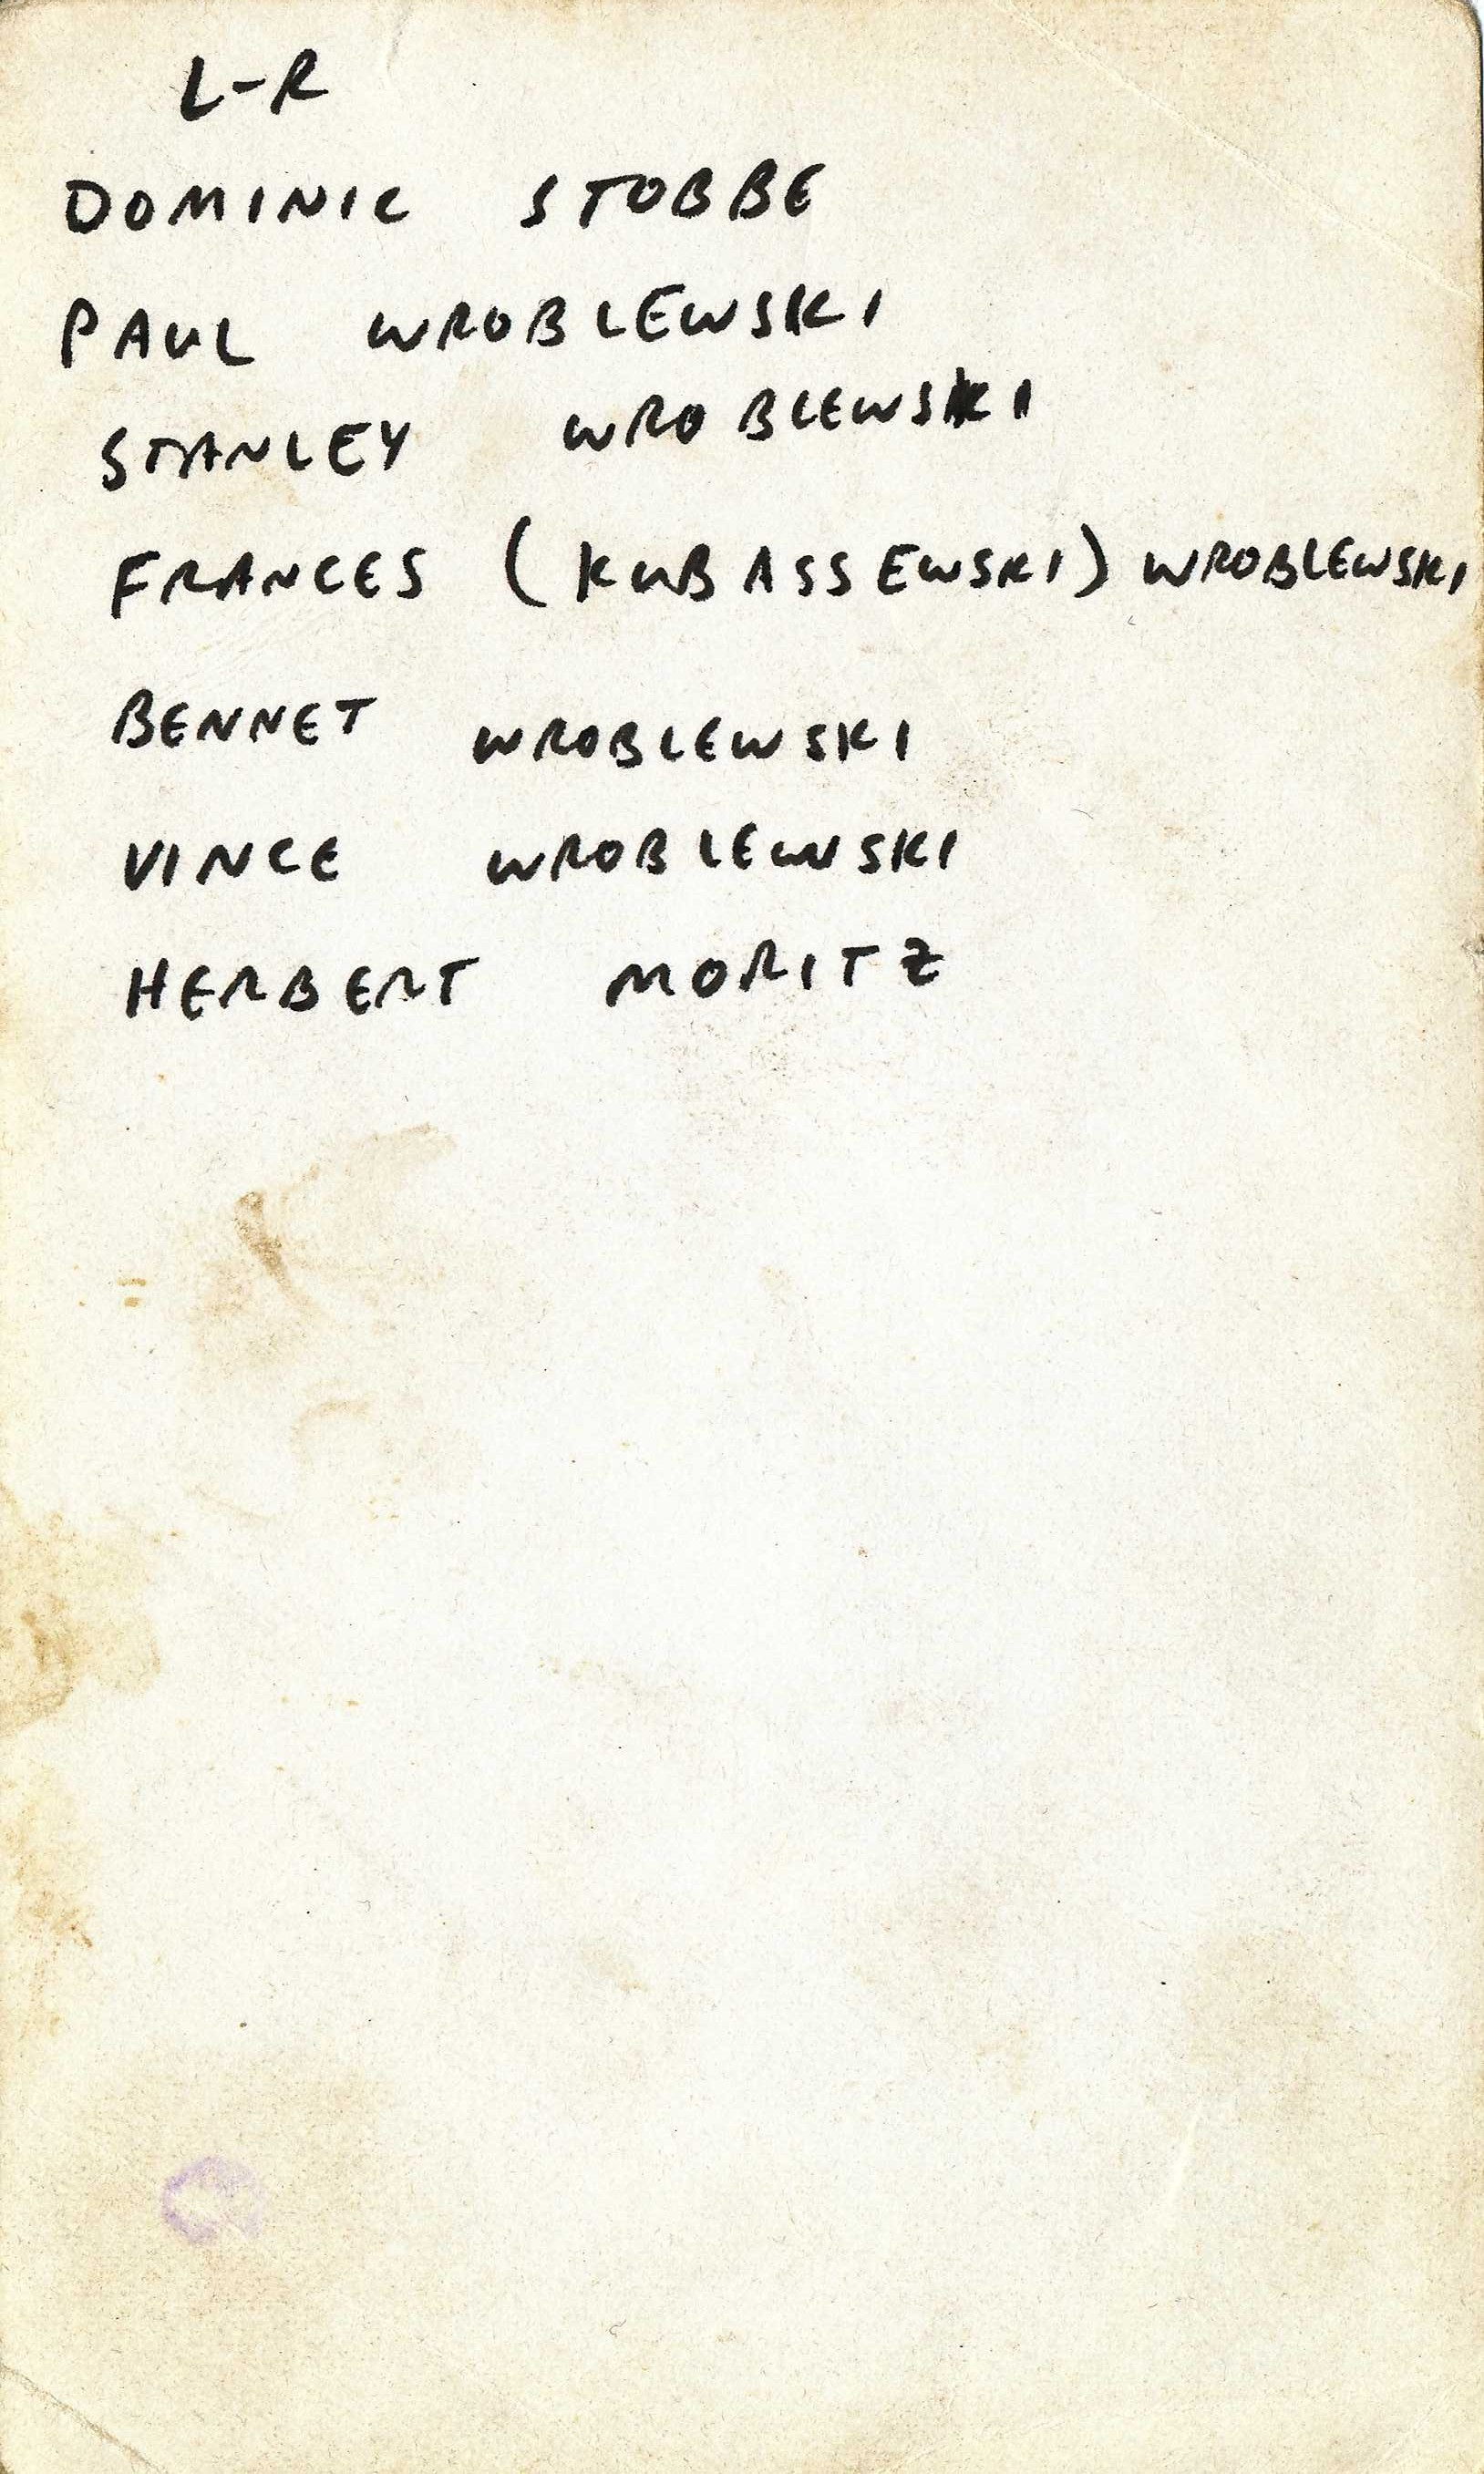 L-R
DOMINIC STOBBE
PAUL WROBLEWSKI
STANLEY WROBLEWSKI
FRANCES (KUBASSEWSKI) WROBLEWSKI
BENNET WROBLEWSKI
VINCE WROBLEWSKI
HERBERT MORITZ